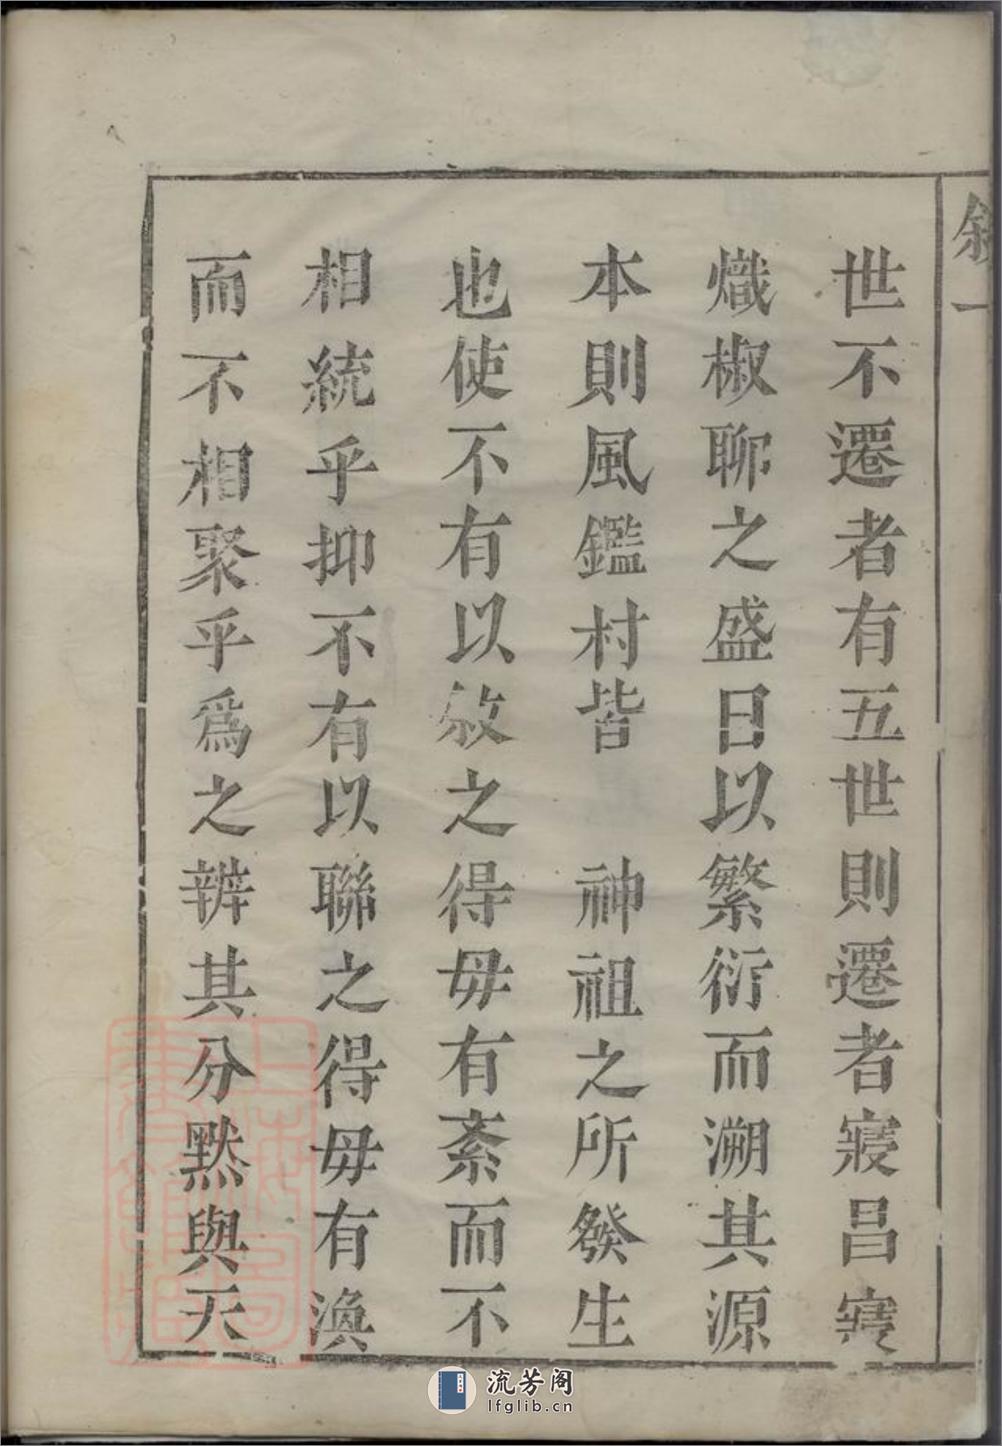 敘一
世不遷者有五世則遷者寖昌寖
熾椒聊之盛日以繁衍而溯其源
本則風鑑村皆 神祖之所發生
也使不有以敘之得毋有紊而不
相統乎抑不有以聯之得毋有渙
而不相聚乎爲之辨其分㸃與天
流芳阁
lfglib.cn